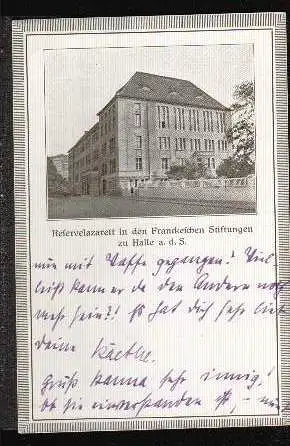 Reservelazarett in den Franckeschen Stiftungen
zu Halle a. d. S.
nun mit Kaffe gegangen! Viel
kann er da den Andern noch
mehr sein?! Es hat dich sehr lieb
deine Käethe.
Gruß Hanna sehr innig!
Ob sie einverstanden ist, –